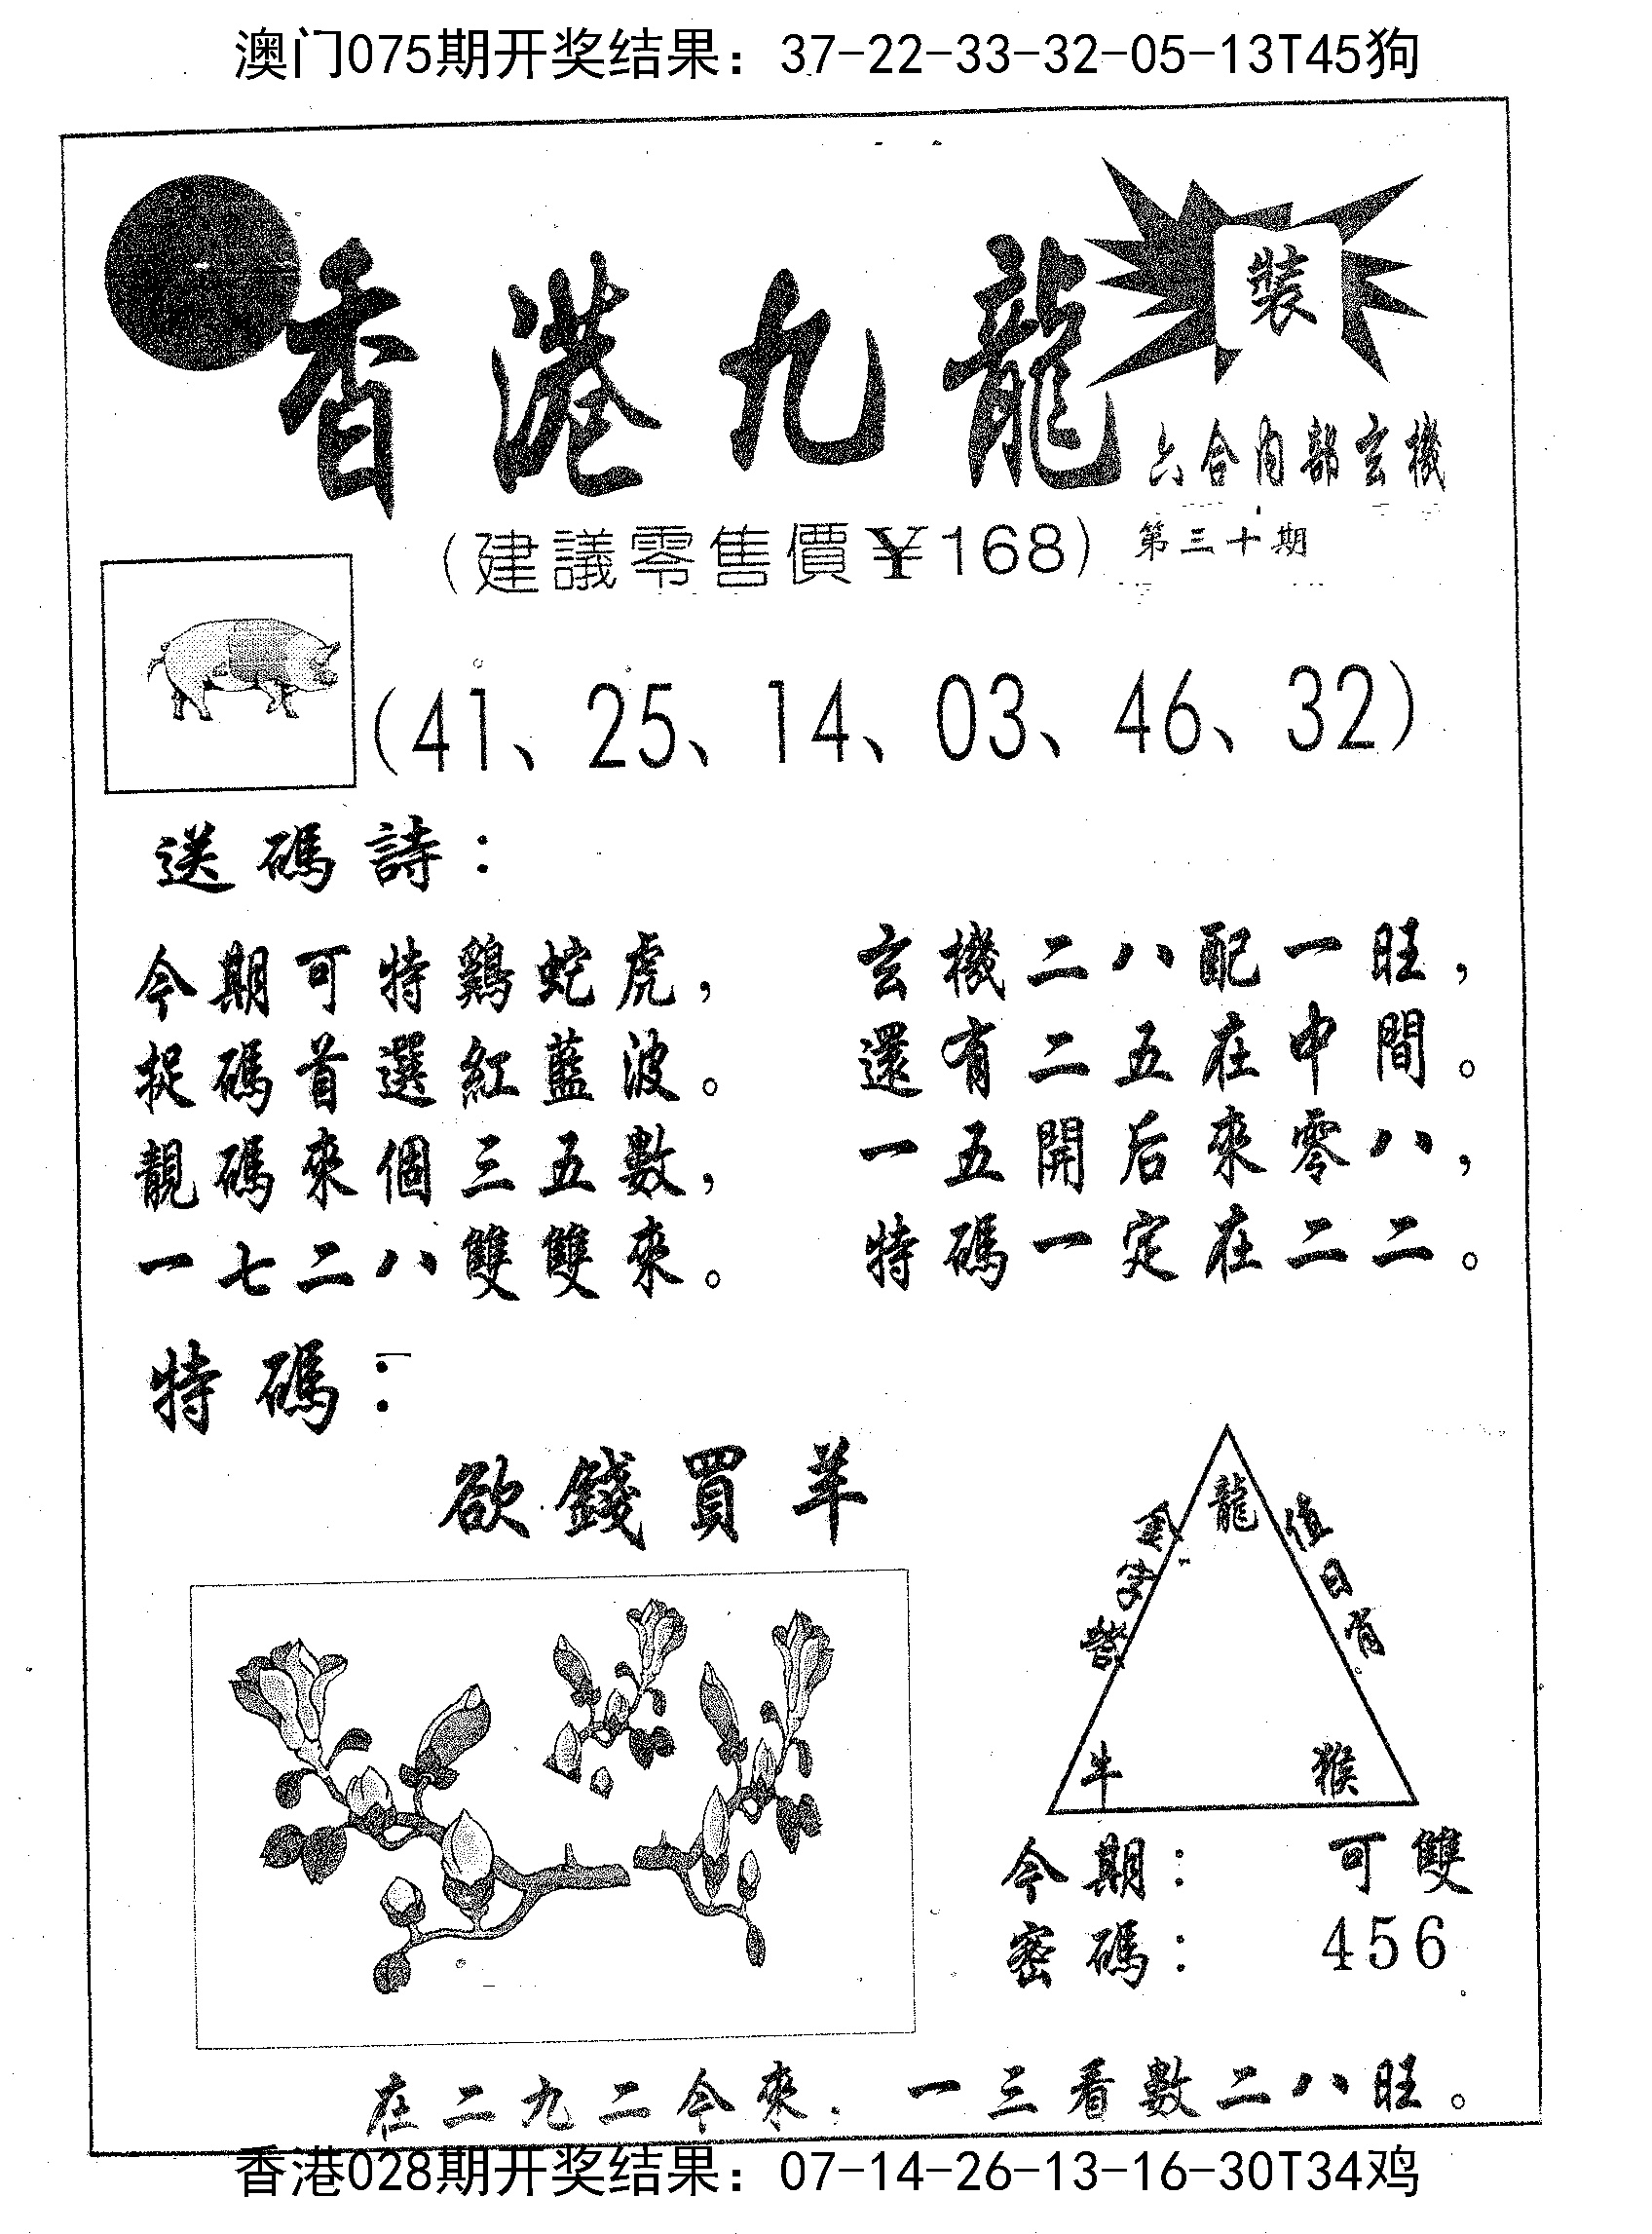 澳门075期开奖结果：37-22-33-32-05-13T45狗
裝
香港九龍
六合内部玄機
(建議零售價¥168)
第三十期
(41、25、14、03、46、32)
送碼詩：
今期可特鷄蛇虎，
捉碼首選紅藍波。
靚碼來個三五數，
一七二八雙雙來。
玄機二八配一旺，
還有二五在中間。
一五開后來零八，
特碼一定在二二。
特碼：
欲錢買羊
龍
值日肖
牛
猴
今期： 可雙
密碼： 456
在二九二今來. 一三看數二八旺。
香港028期开奖结果：07-14-26-13-16-30T34鸡